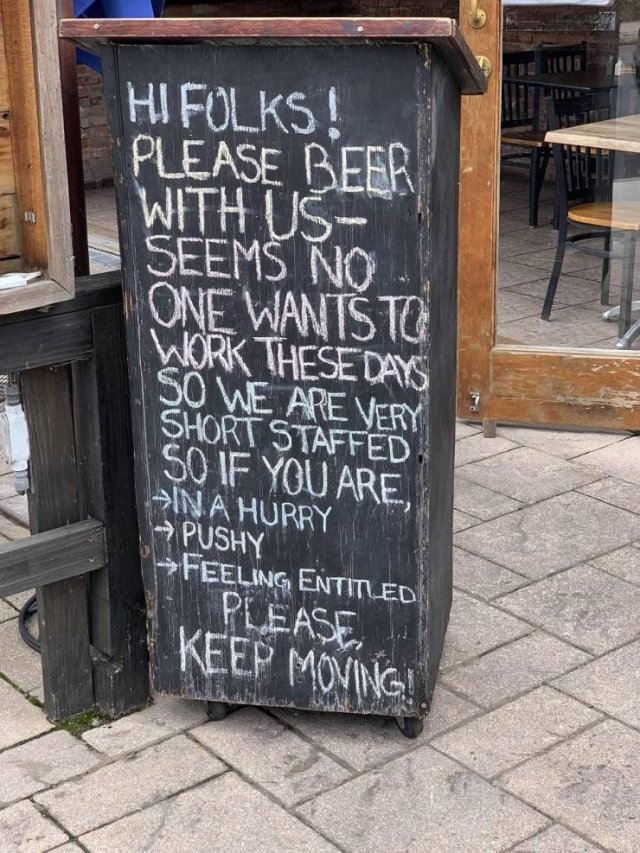 HI FOLKS!
PLEASE BEER
WITH US-
SEEMS NO
ONE WANTS TO
WORK THESE DAYS
SO WE ARE VERY
SHORT STAFFED
SO IF YOU ARE,
→IN A HURRY
→PUSHY
→FEELING ENTITLED
PLEASE
KEEP MOVING!